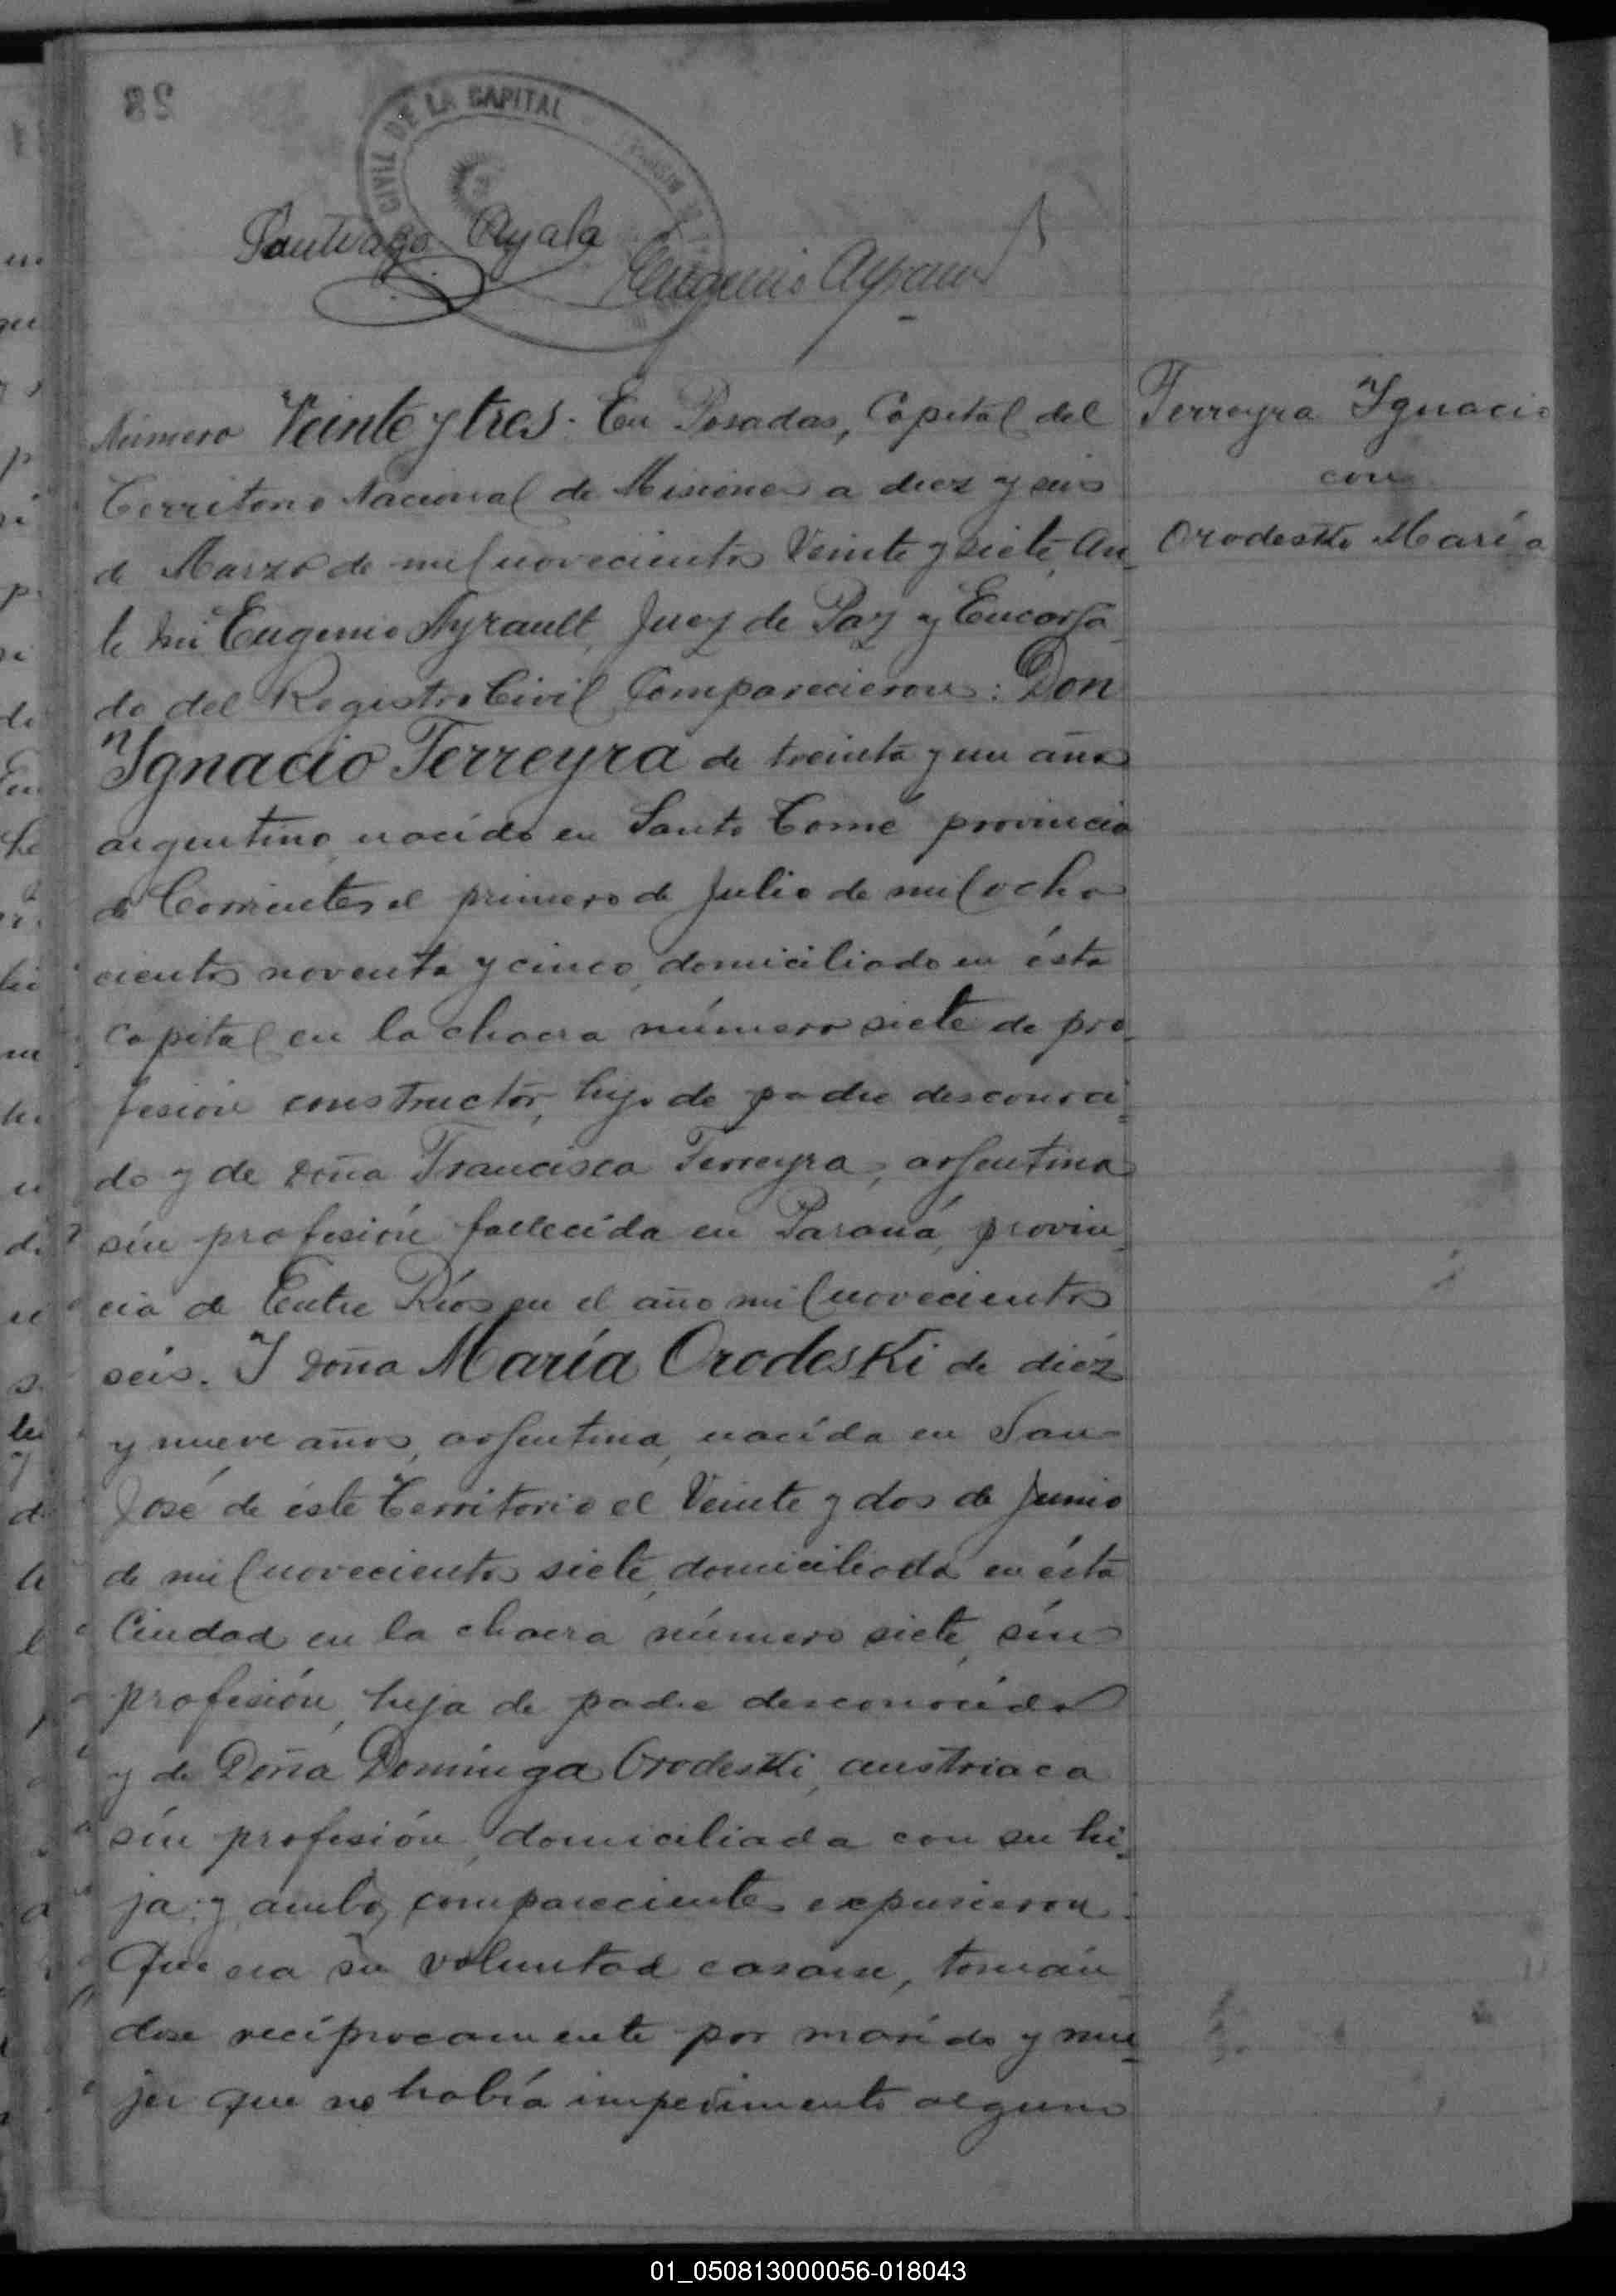 28
CIVIL DE LA CAPITAL
Santiago Ayala
Eugenio Ayrault
Número Veinte y tres. En Posadas, Capital del
Territorio Nacional de Misiones a diez y seis
de Marzo de mil novecientos Veinte y siete, An_
te mi Eugenio Ayrault, Juez de Paz y Encarga_
do del Registro Civil Comparecieron: Don
Ignacio Ferreyra de treinta y un años
argentino, nacido en Santo Tomé provincia
de Corrientes el primero de Julio de mil ocho
cientos noventa y cinco, domiciliado en ésta
Capital en la chacra número siete de pro_
fesión constructor, hijo de padre desconoci_
do y de Doña Francisca Ferreyra, argentina
sín profesión fallecida en Paraná, provin_
cia de Entre Ríos en el año mil novecientos
seis. Y Doña María Orodeski de diéz
y nueve años, argentina, nacída en San
José de éste Territorio el Veinte y dos de Junio
de mil novecientos siete, domiciliada en ésta
Ciudad en la chacra número siete, sín
profesión, hija de padre desconocído
y de Doña Domínga Orodeski, austriaca
sín profesión, domiciliada con su hi_
ja y ambos comparecientes expusieron:
Que era su voluntad casarse, tomán_
dose recíprocamente por marido y mu_
jer que no había impedimento alguno
Ferreyra Ignacio
con
Orodeski María
01_050813000056-018043